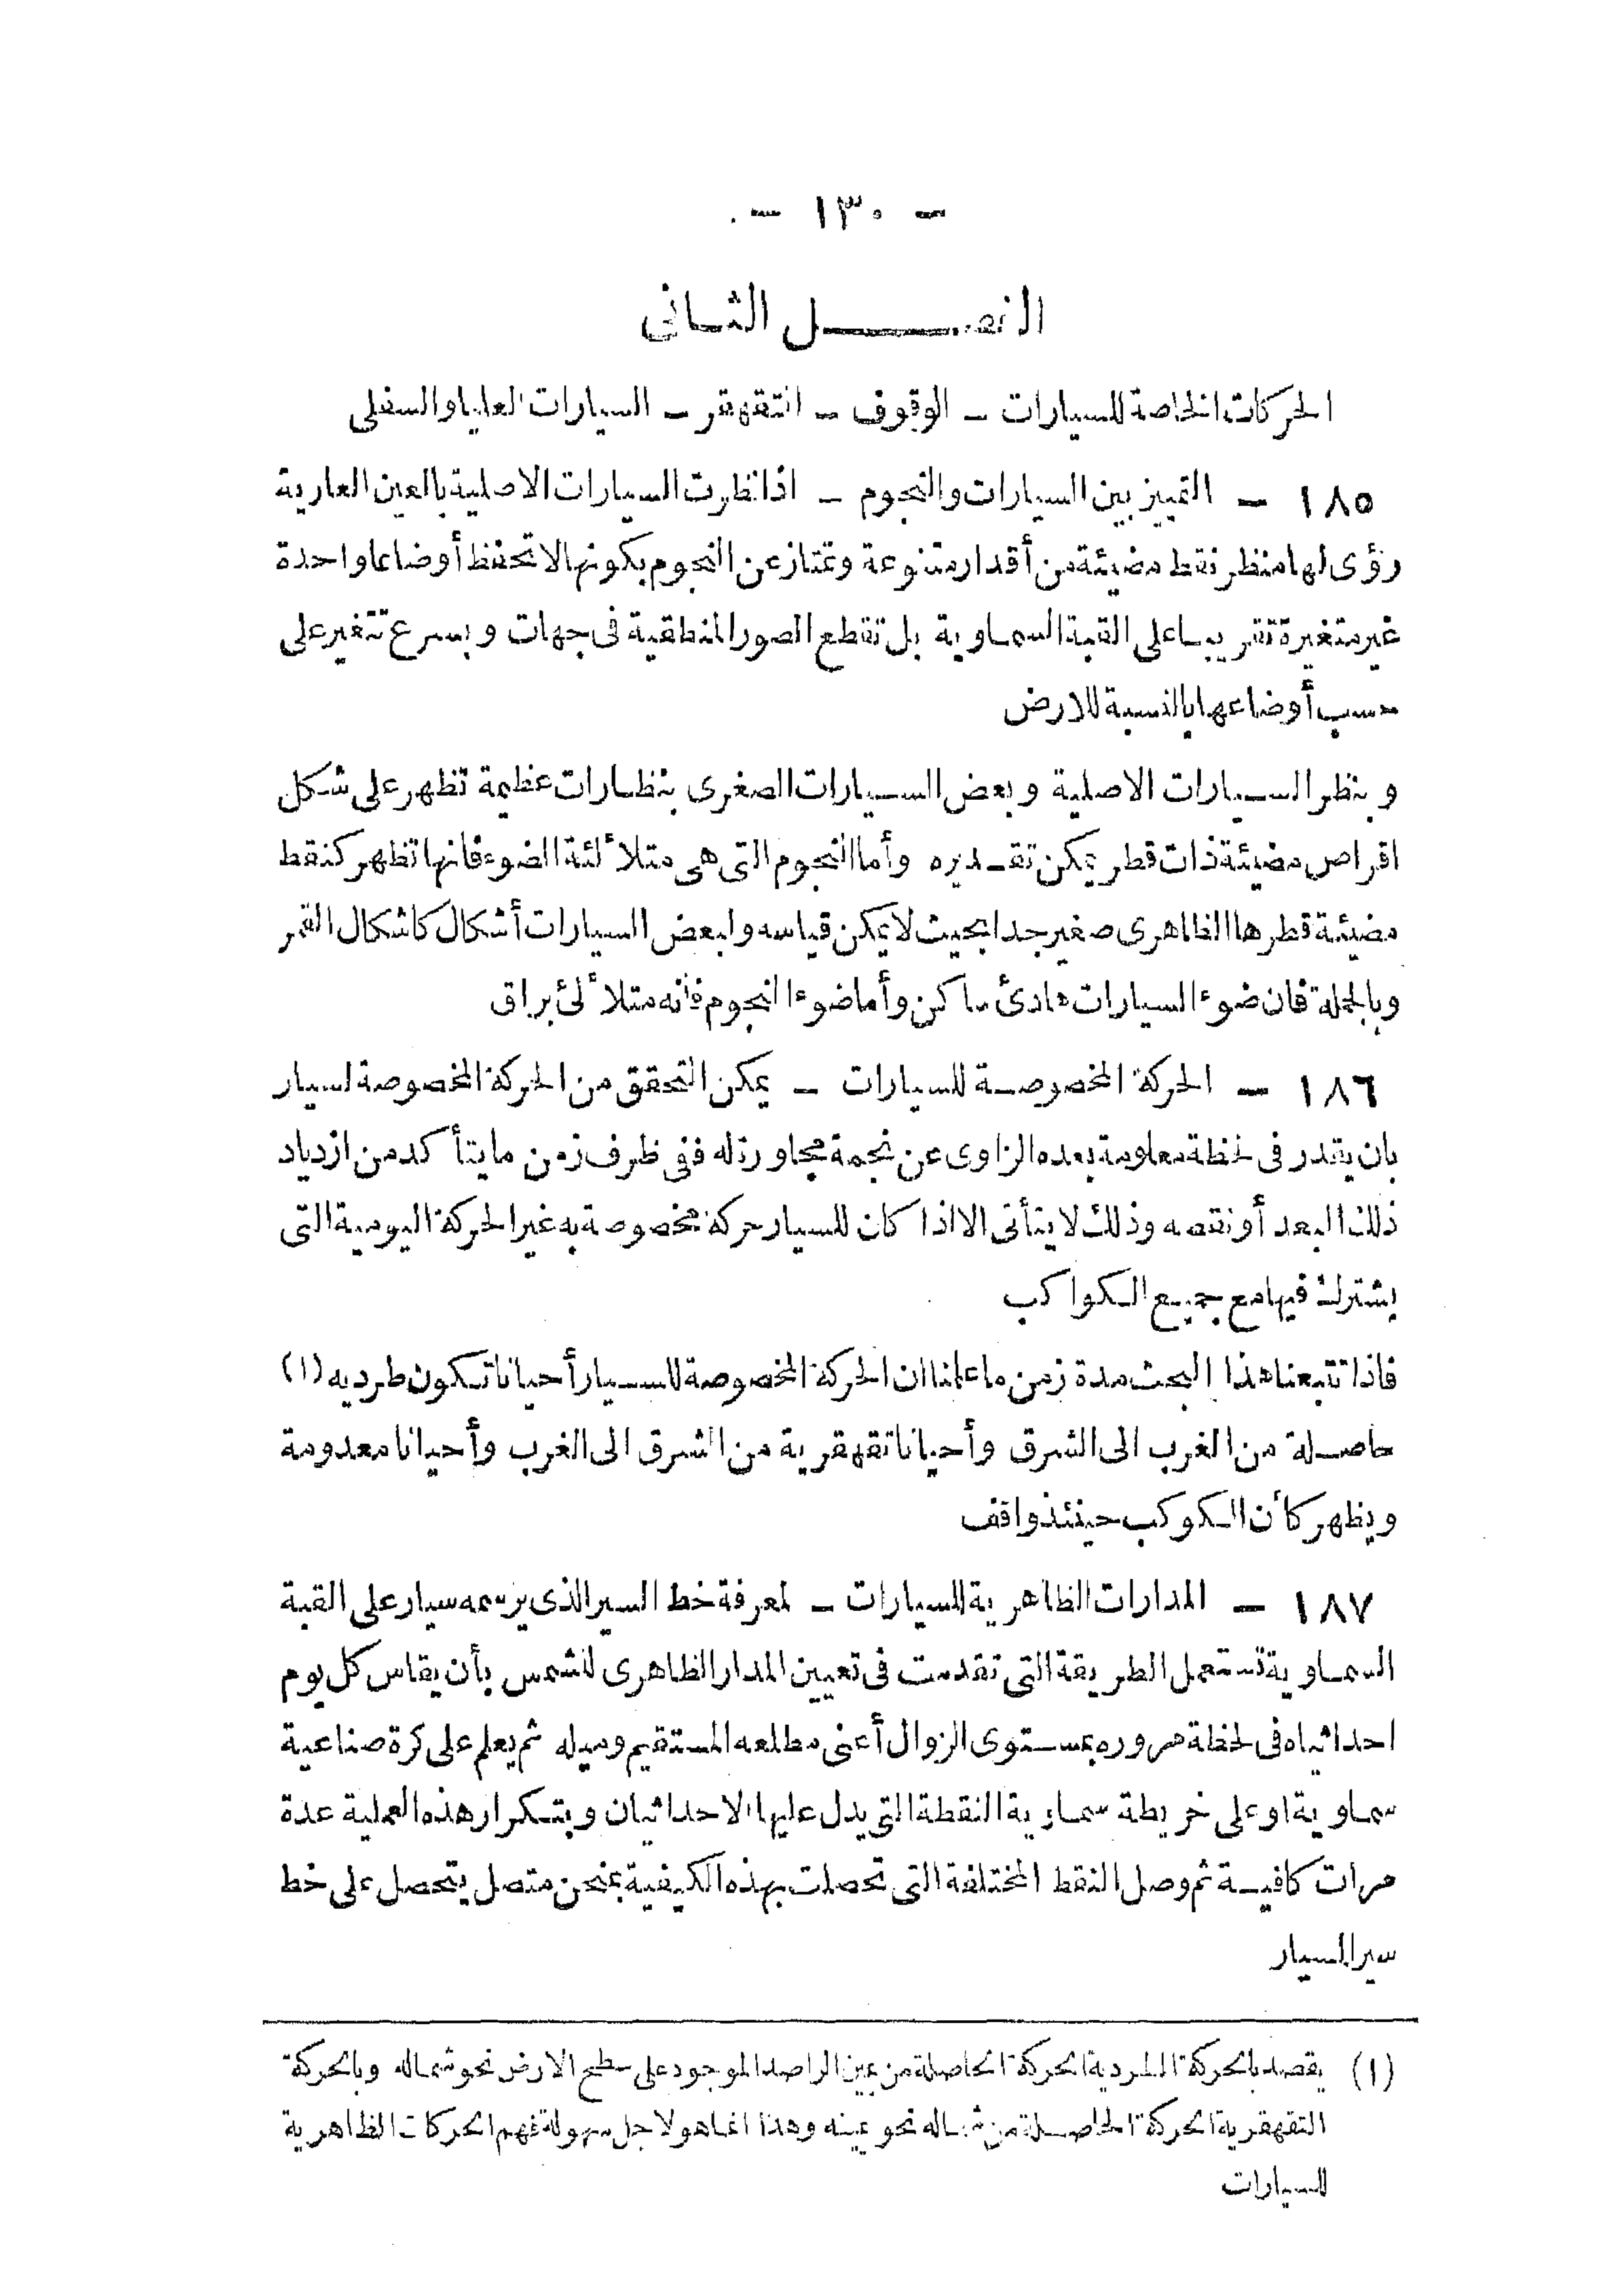 - ١٣٠ -
الفصل الثانى
الحركات الخاصة للسيارات - الوقوف - التقهقر - السيارات العليا والسفلى
١٨٥ - التمييز بين السيارات والنجوم - اذا نظرت السيارات الاصلية بالعين العارية
رؤى لها منظر نقط مضيئة من أقدار متنوعة وتمتاز عن النجوم بكونها لا تحفظ أوضاعا واحدة
غير متغيرة تقريبا على القبة السماوية بل تقطع الصور المنطقية فى جهات وبسرع تتغير على
حسب أوضاعها بالنسبة للارض
وبنظر السيارات الاصلية وبعض السيارات الصغرى بنظارات عظيمة تظهر على شكل
اقراص مضيئة ذات قطر يمكن تقديره وأما النجوم التى هى متلألئة الضوء فانها تظهر كنقط
مضيئة قطرها الظاهرى صغير جدا بحيث لا يمكن قياسه ولبعض السيارات أشكال كاشكال القمر
وبالجملة فان ضوء السيارات هادئ ساكن وأما ضوء النجوم فانه متلألئ براق
١٨٦ - الحركة المخصوصة للسيارات - يمكن التحقق من الحركة المخصوصة لسيار
بان يقدر فى لحظة معلومة بعده الزاوى عن نجمة مجاورة له ففى ظرف زمن ما يتأكد من ازدياد
ذلك البعد أو نقصه وذلك لا يتأتى الا اذا كان للسيار حركة مخصوصة به غير الحركة اليومية التى
يشترك فيها مع جميع الكواكب
فاذا تتبعنا هذا البحث مدة زمن ما علمنا ان الحركة المخصوصة للسيار أحيانا تكون طرديه (١)
حاصلة من الغرب الى الشرق وأحيانا تقهقرية من الشرق الى الغرب وأحيانا معدومة
ويظهر كأن الكوكب حينئذ واقف
١٨٧ - المدارات الظاهرية للسيارات - لمعرفة خط السير الذى يرسمه سيار على القبة
السماوية تستعمل الطريقة التى تقدمت فى تعيين المدار الظاهرى للشمس بأن يقاس كل يوم
احداثياه فى لحظة مروره بمستوى الزوال أعنى مطلعه المستقيم وميله ثم يعلم على كرة صناعية
سماوية او على خريطة سماوية النقطة التى يدل عليها الاحداثيان وبتكرار هذه العملية عدة
مرات كافية ثم وصل النقط المختلفة التى تحصلت بهذه الكيفية بمنحن متصل يتحصل على خط
سير السيار
(١) يقصد بالحركة الطردية الحركة الحاصلة من يمين الراصد الموجود على سطح الارض نحو شماله وبالحركة
التقهقرية الحركة الحاصلة من شماله نحو يمينه وهذا انما هو لاجل سهولة فهم الحركات الظاهرية
للسيارات